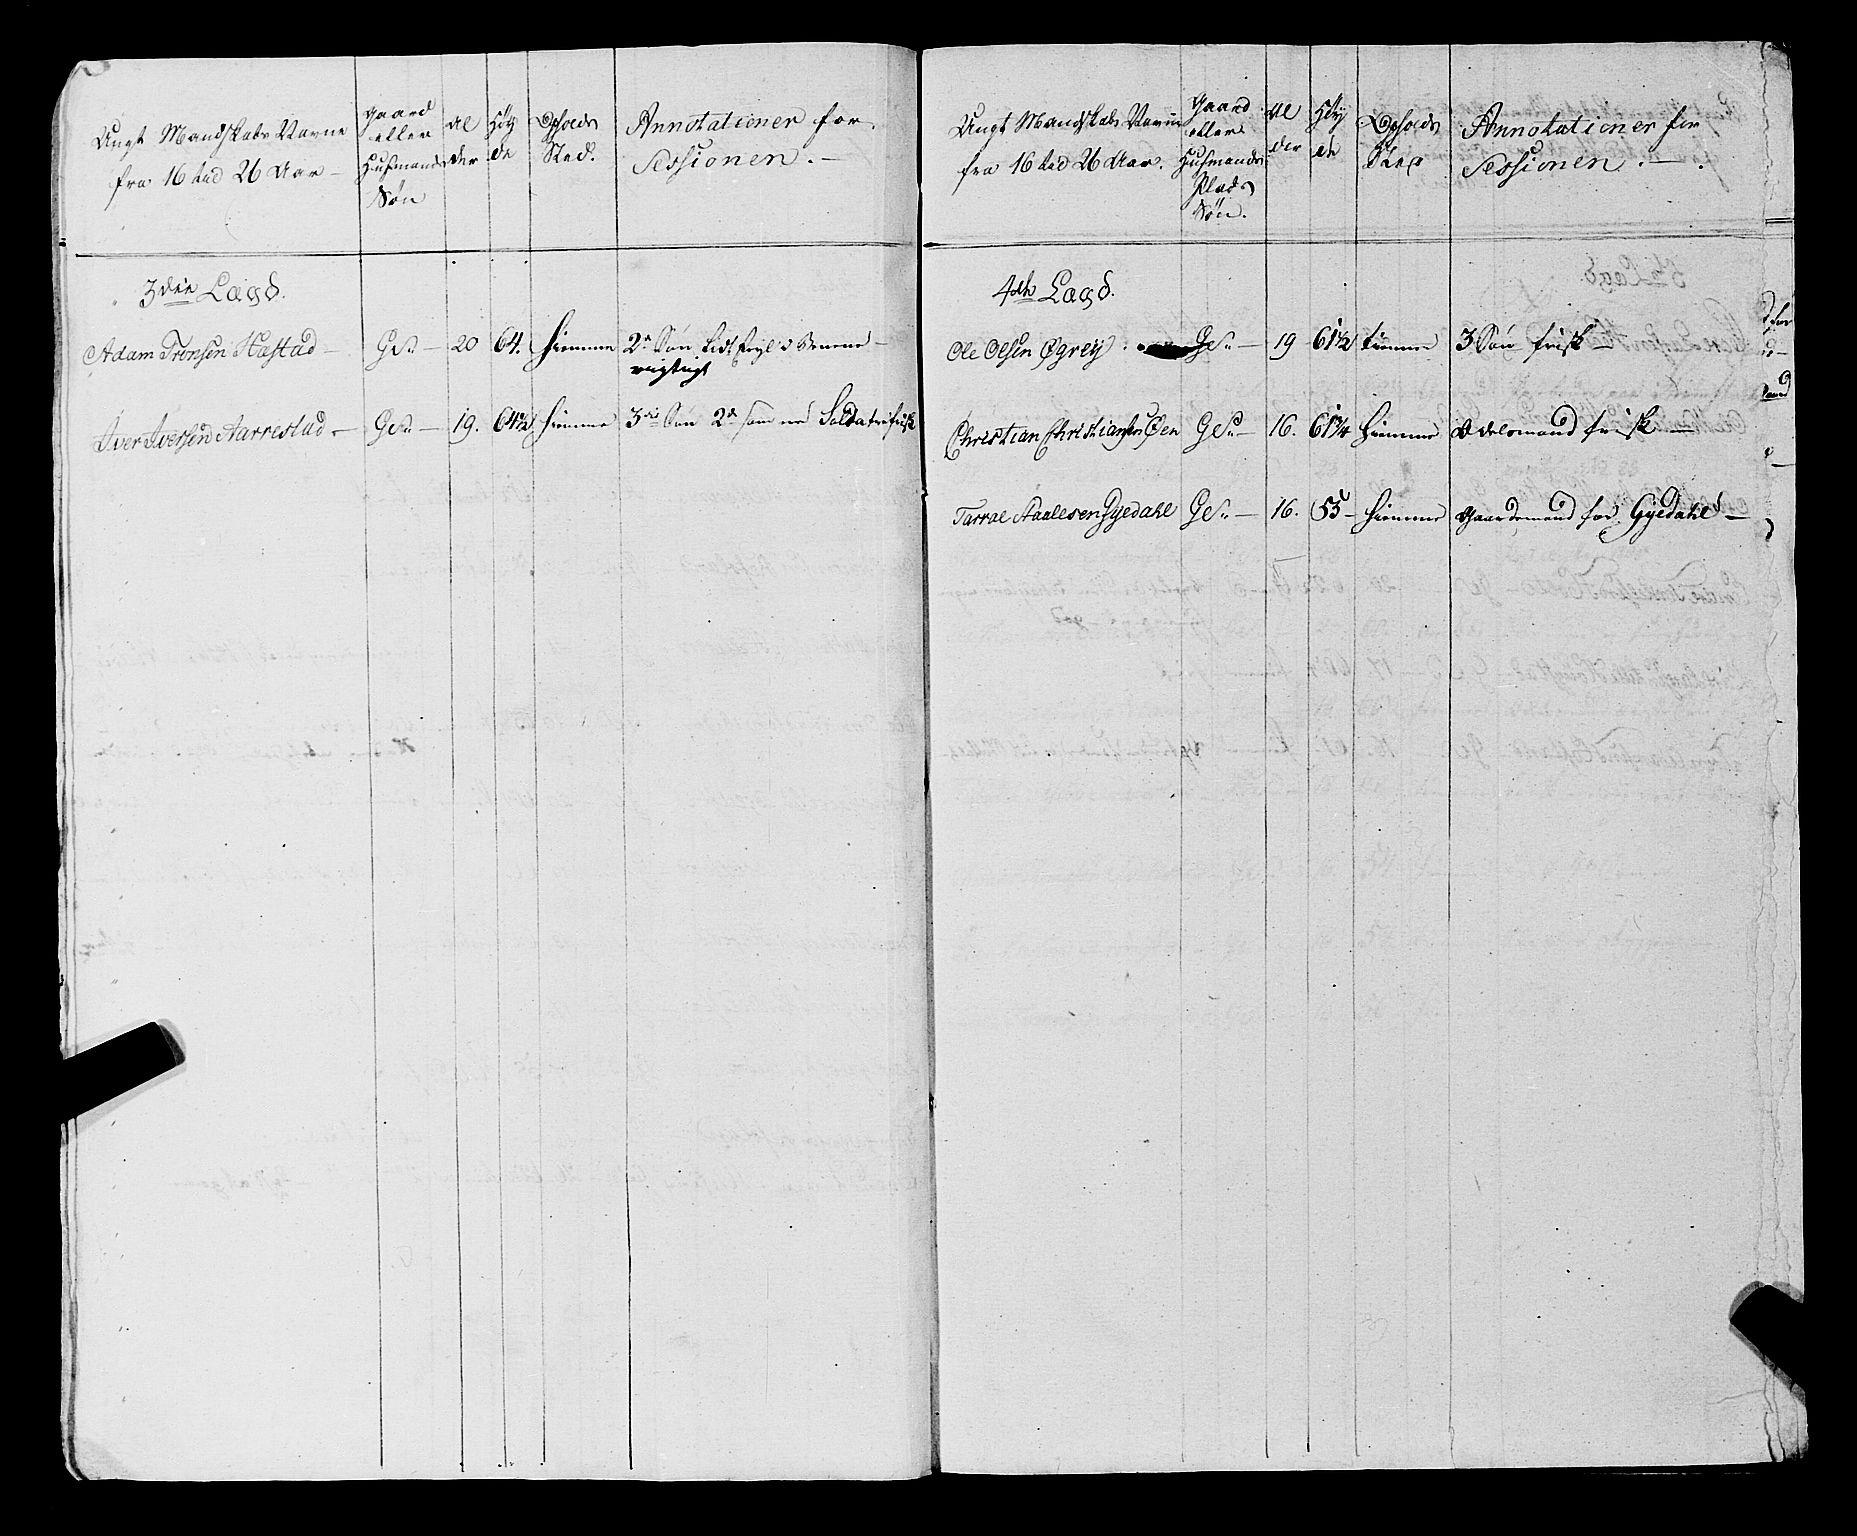 Ungt Mandskabs Navne
fra 16 till 26 Aar –
Gaard
eller
Husmands
Søn
Al
der
Høy
de
Opholds
Sted.
Annotationer for
Sessionen. –
3die Lægd.
Adam Tronsen Hastad – GS. – 20 64. hiemme 2n Søn lidt feyl i Benene –
vigtigt
Iver Iversen Aarrestad – GS. – 19. 64½ hiemme 3die Søn 2de som er Soldater frisk
Ungt Mandskabs Navne
fra 16 till 26 Aar.
Gaard
eller
Husmands
Plads
Søn.
Al
der
Høy
de
Opholds
Sted
Annotationer for
Sessionen. –
4de Lægd.
Ole Olsen Øgrey GS. – 19 61½ hiemme 3 Søn frisk –
Christian Christiansen Øen GS. – 16. 61¼ hiemme Odelsmand frisk –
Tarral Aadlesen Gyedahl GS. – 16. 55 – hiemme Gaardemand for Gyedahl –